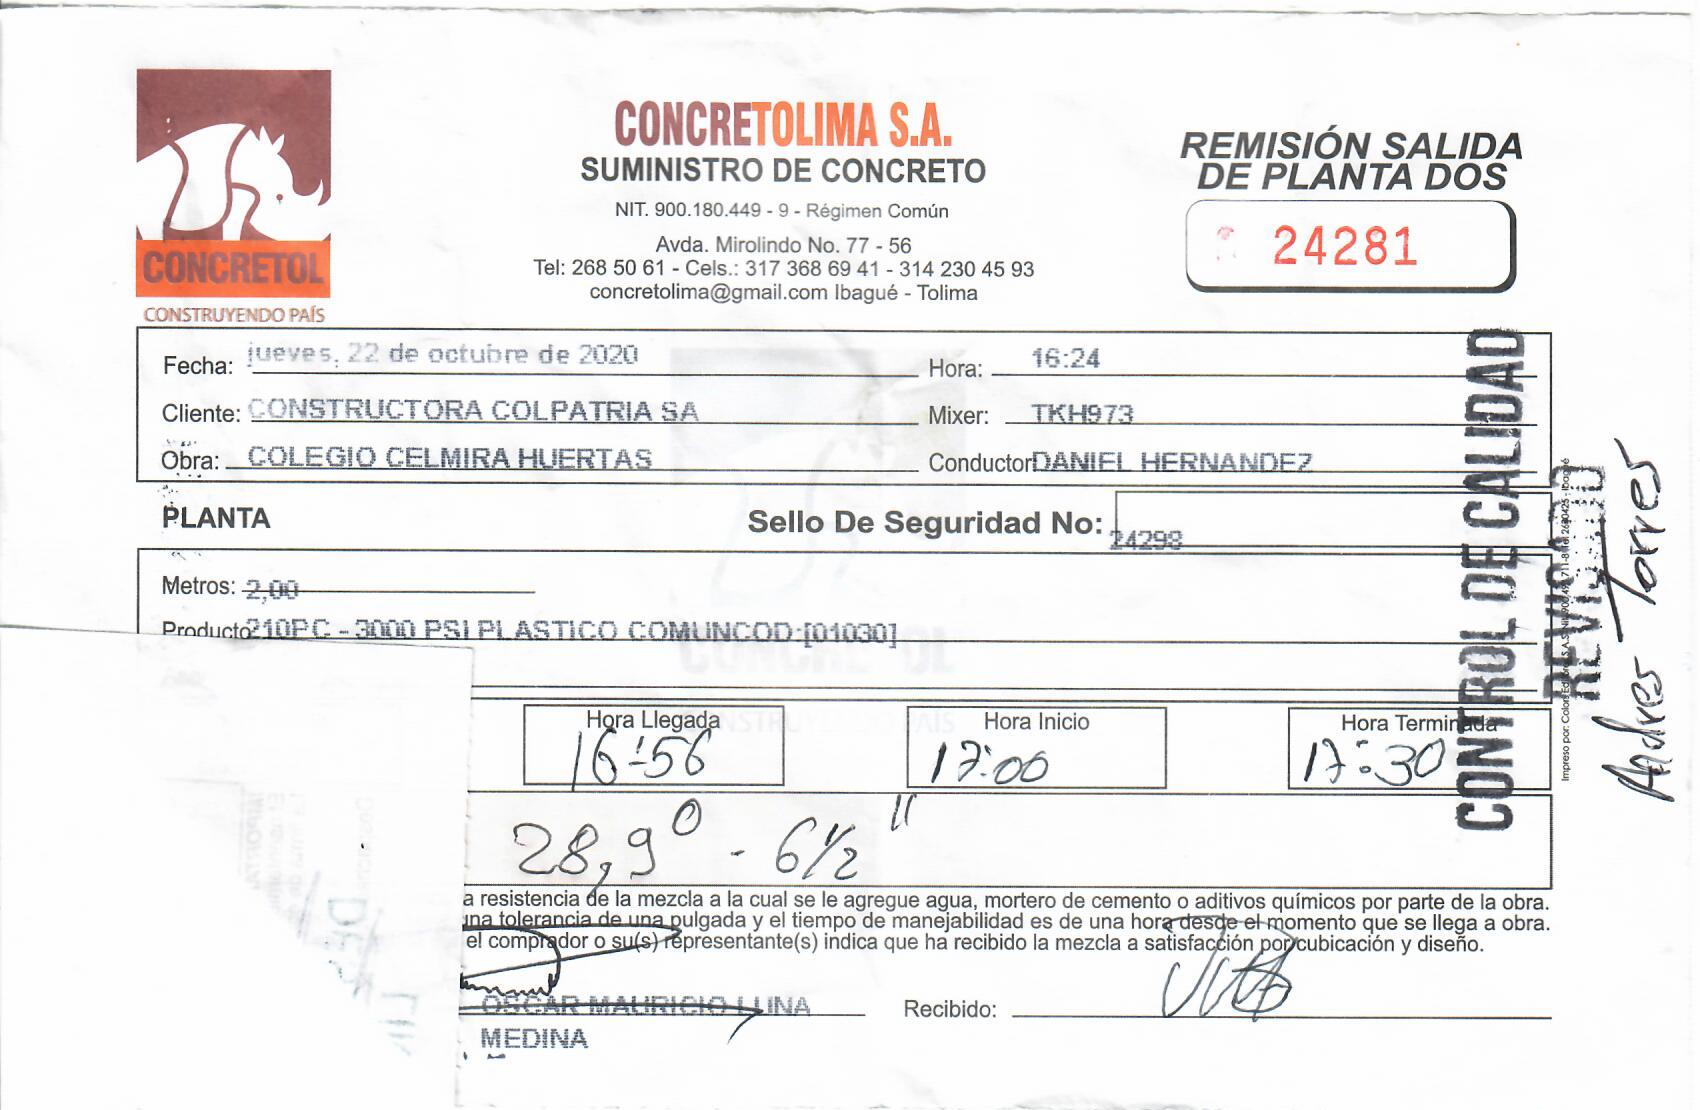 CONCRETOL
CONSTRUYENDO PAÍS
CONCRETOLIMA S.A.
SUMINISTRO DE CONCRETO
NIT. 900.180.449 - 9 - Régimen Común
Avda. Mirolindo No. 77 - 56
Tel: 268 50 61 - Cels.: 317 368 69 41 - 314 230 45 93
concretolima@gmail.com Ibagué - Tolima
REMISIÓN SALIDA
DE PLANTA DOS
24281
Fecha: jueves, 22 de octubre de 2020 Hora: 16:24
Cliente: CONSTRUCTORA COLPATRIA SA Mixer: TKH973
Obra: COLEGIO CELMIRA HUERTAS Conductor DANIEL HERNANDEZ
PLANTA Sello De Seguridad No: 24298
Metros: 2,00
Producto 210PC - 3000 PSI PLASTICO COMUNCOD:[01030]
Hora Llegada Hora Inicio Hora Terminada
16:56 17:00 17:30
28,9° - 6 1/2"
a resistencia de la mezcla a la cual se le agregue agua, mortero de cemento o aditivos químicos por parte de la obra.
una tolerancia de una pulgada y el tiempo de manejabilidad es de una hora desde el momento que se llega a obra.
el comprador o su(s) representante(s) indica que ha recibido la mezcla a satisfacción por cubicación y diseño.
OSCAR MAURICIO LUNA Recibido:
MEDINA
CONTROL DE CALIDAD
REVISADO
Andres Torres